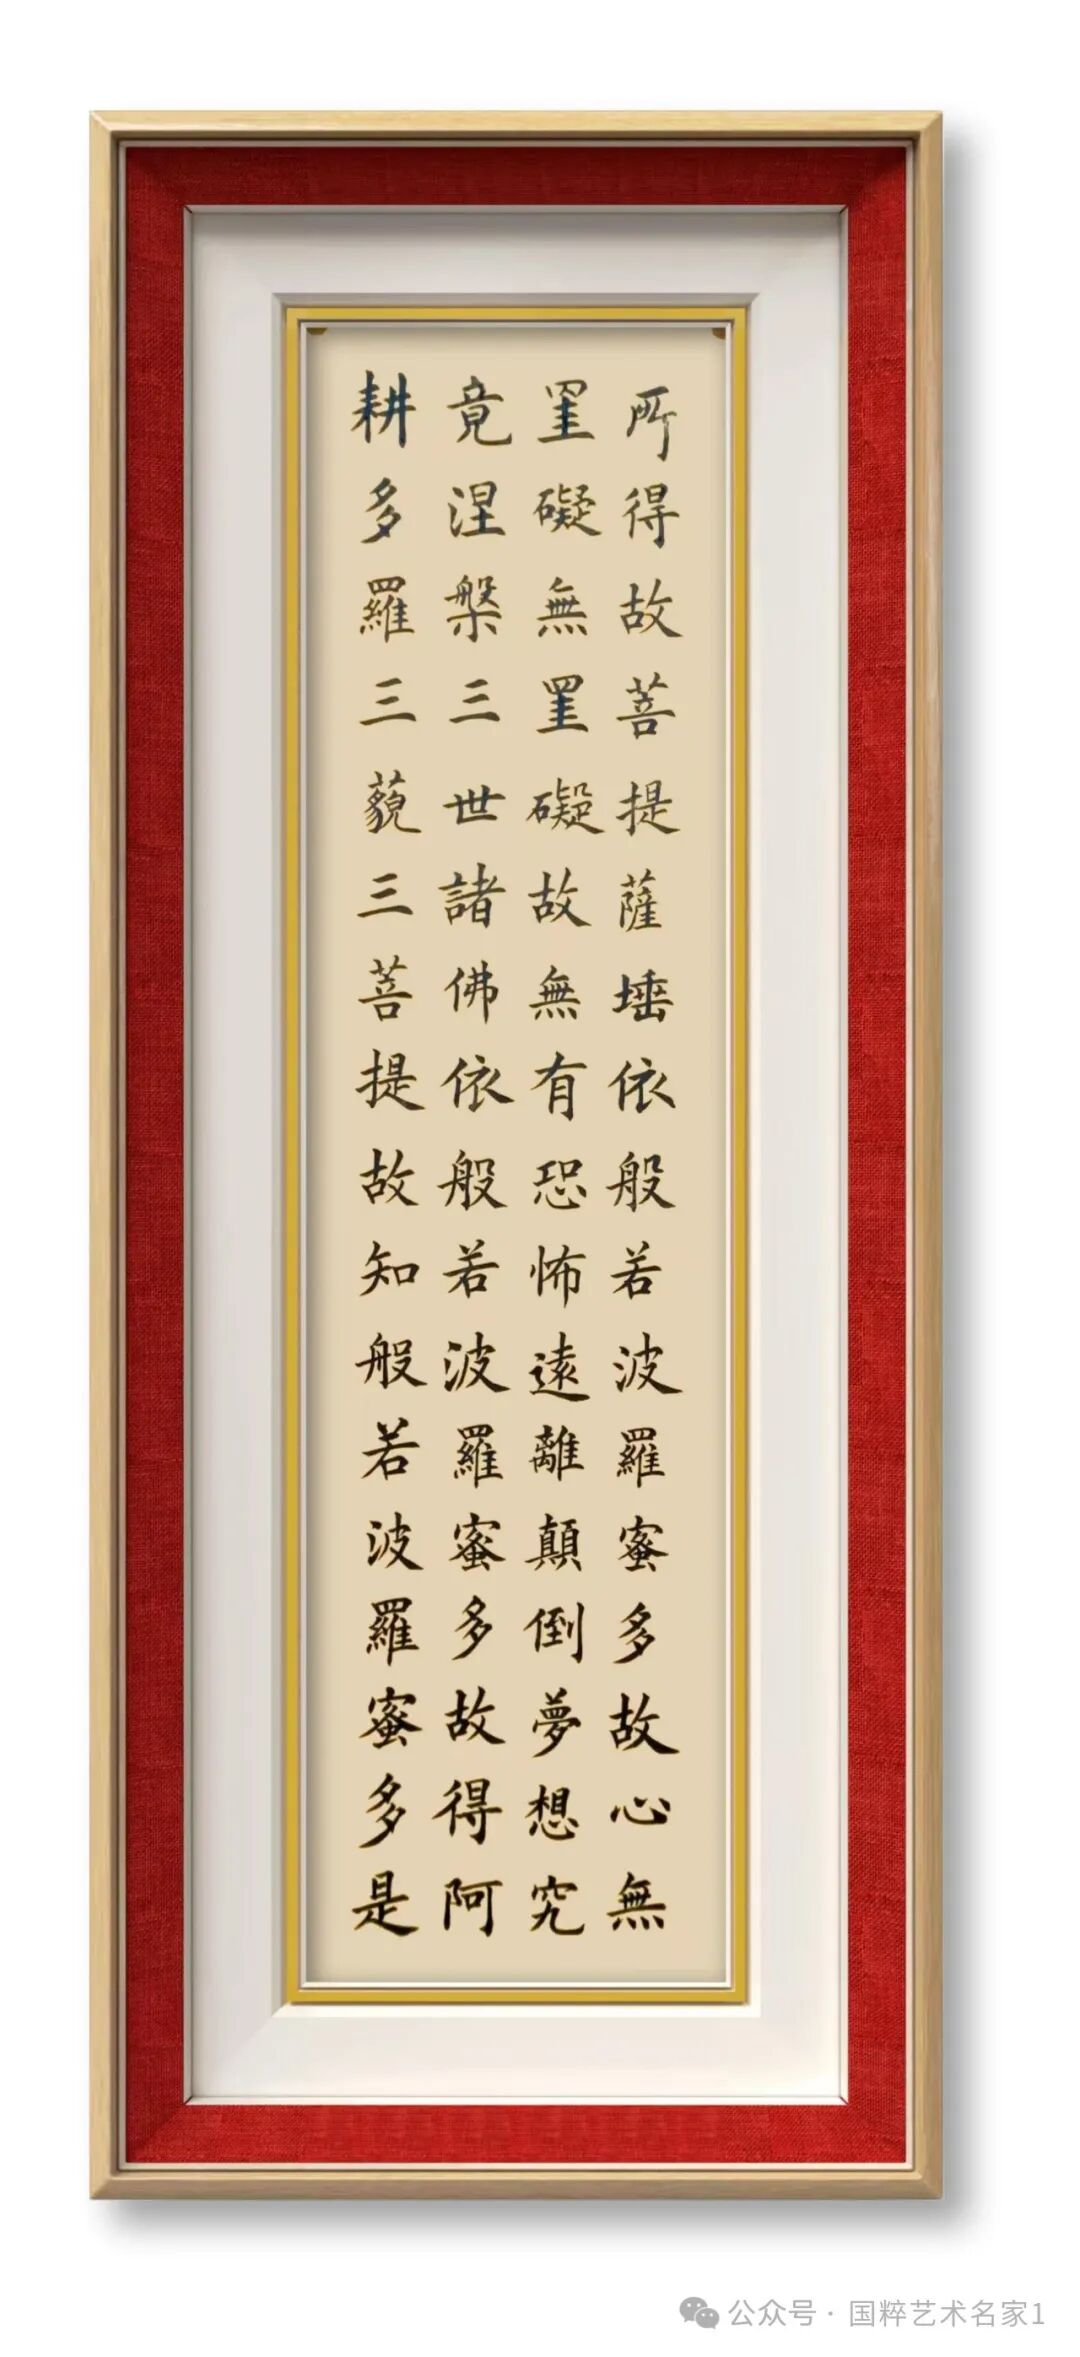 所得故菩提薩埵依般若波羅蜜多故心無
罣礙無罣礙故無有恐怖遠離顛倒夢想究
竟涅槃三世諸佛依般若波羅蜜多故得阿
耕多羅三藐三菩提故知般若波羅蜜多是
公众号 · 国粹艺术名家1